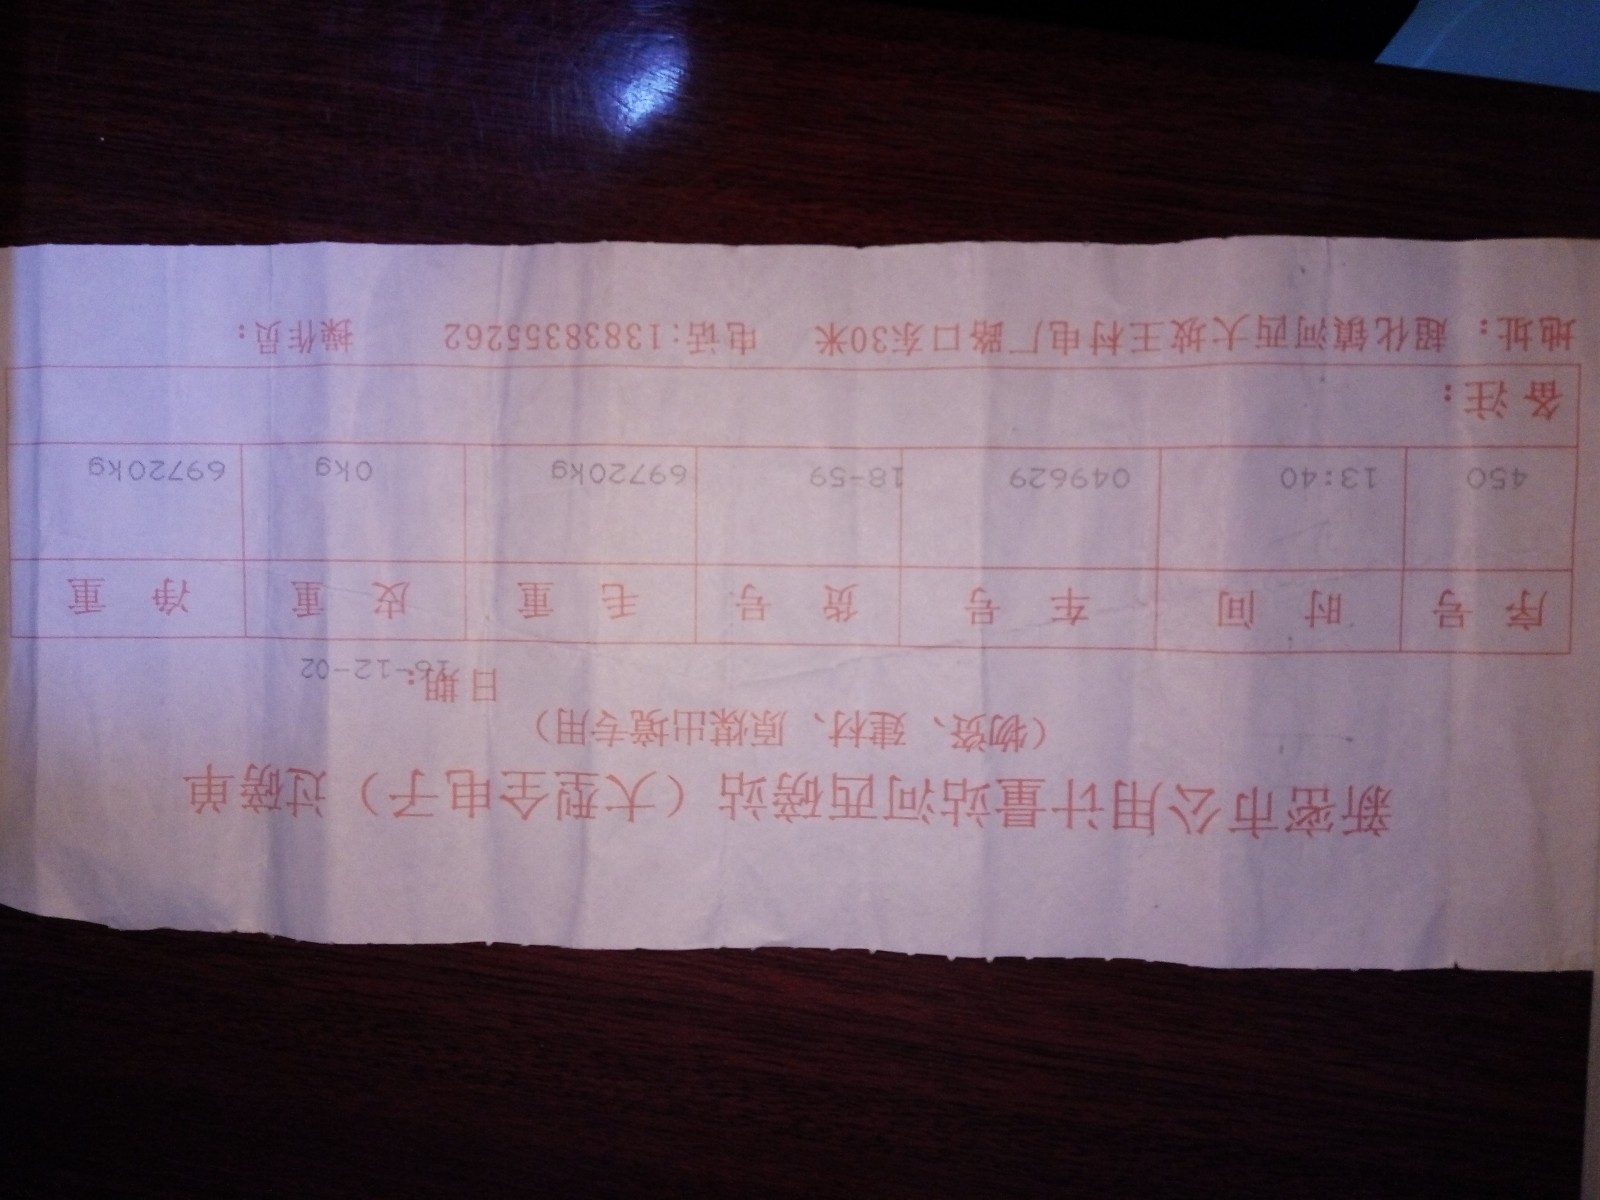 新密市公用计量站河西磅站（大型全电子）过磅单
（物资、建材、原煤出境专用）
日期：16-12-02
序号 时间 车号 货号 毛重 皮重 净重
450 13:40 049629 18-59 69720kg 0kg 69720kg
备注：
地址：超化镇河西大坡王村电厂路口东30米 电话：13838355262 操作员：